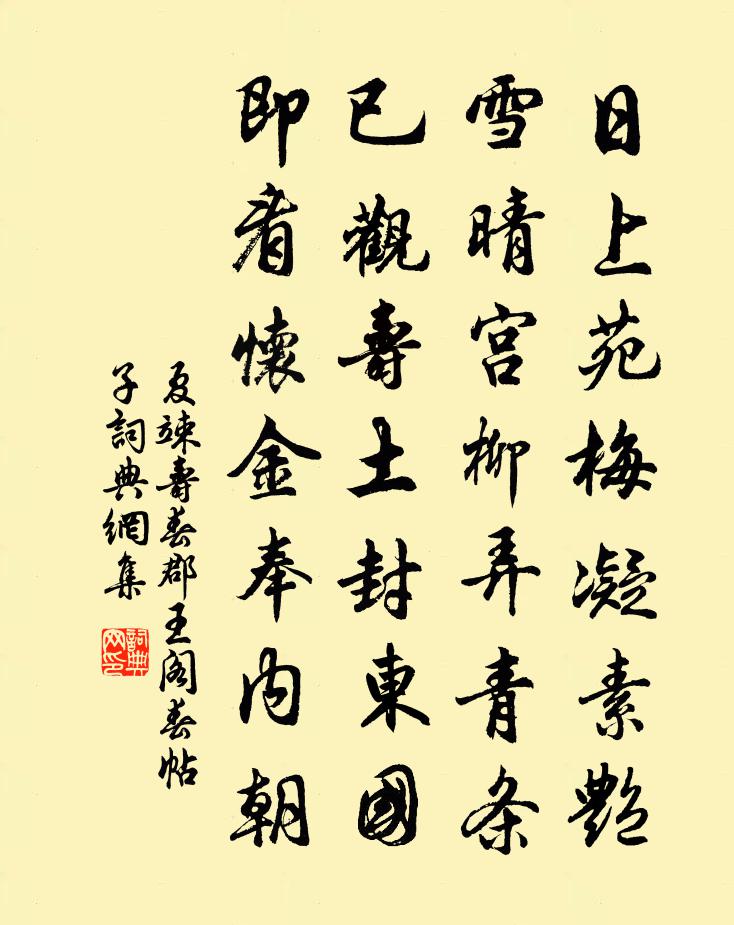 日上苑梅凝素艷
雪晴宮柳弄青条
已觀壽土封東國
即看懷金奉內朝
夏竦壽春郡王閣春帖
子詞典網集
詞典网印